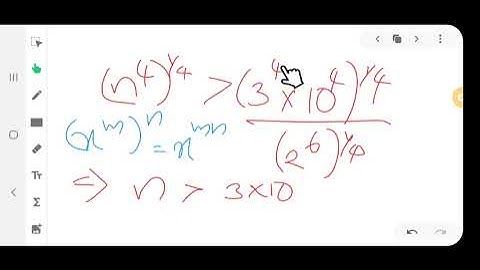 (n⁴)^¼ > (3⁴ × 10⁴)^¼ / (2⁶)^¼
(x^m)^n = x^mn
⇔ n > 3×10
Tт
Σ